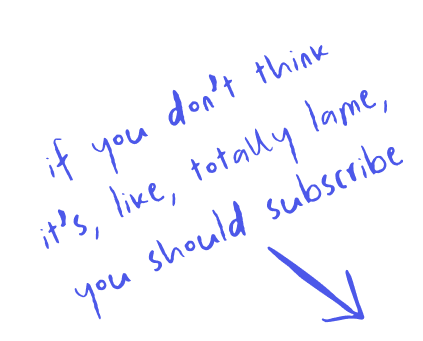 if you don't think
it's, like, totally lame,
you should subscribe